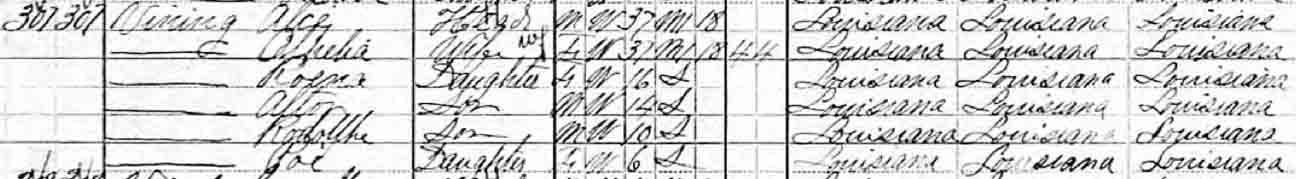 307 307 Vining Alce Head M W 37 M1 18 Louisiana Louisiana Louisiana
Wife F W 37 M1 18 4 4 Louisiana Louisiana Louisiana
Daughter F W 16 S Louisiana Louisiana Louisiana
Alton Son M W 14 S Louisiana Louisiana Louisiana
Rodolphe Son M W 10 S Louisiana Louisiana Louisiana
Zoe Daughter F W 6 S Louisiana Louisiana Louisiana